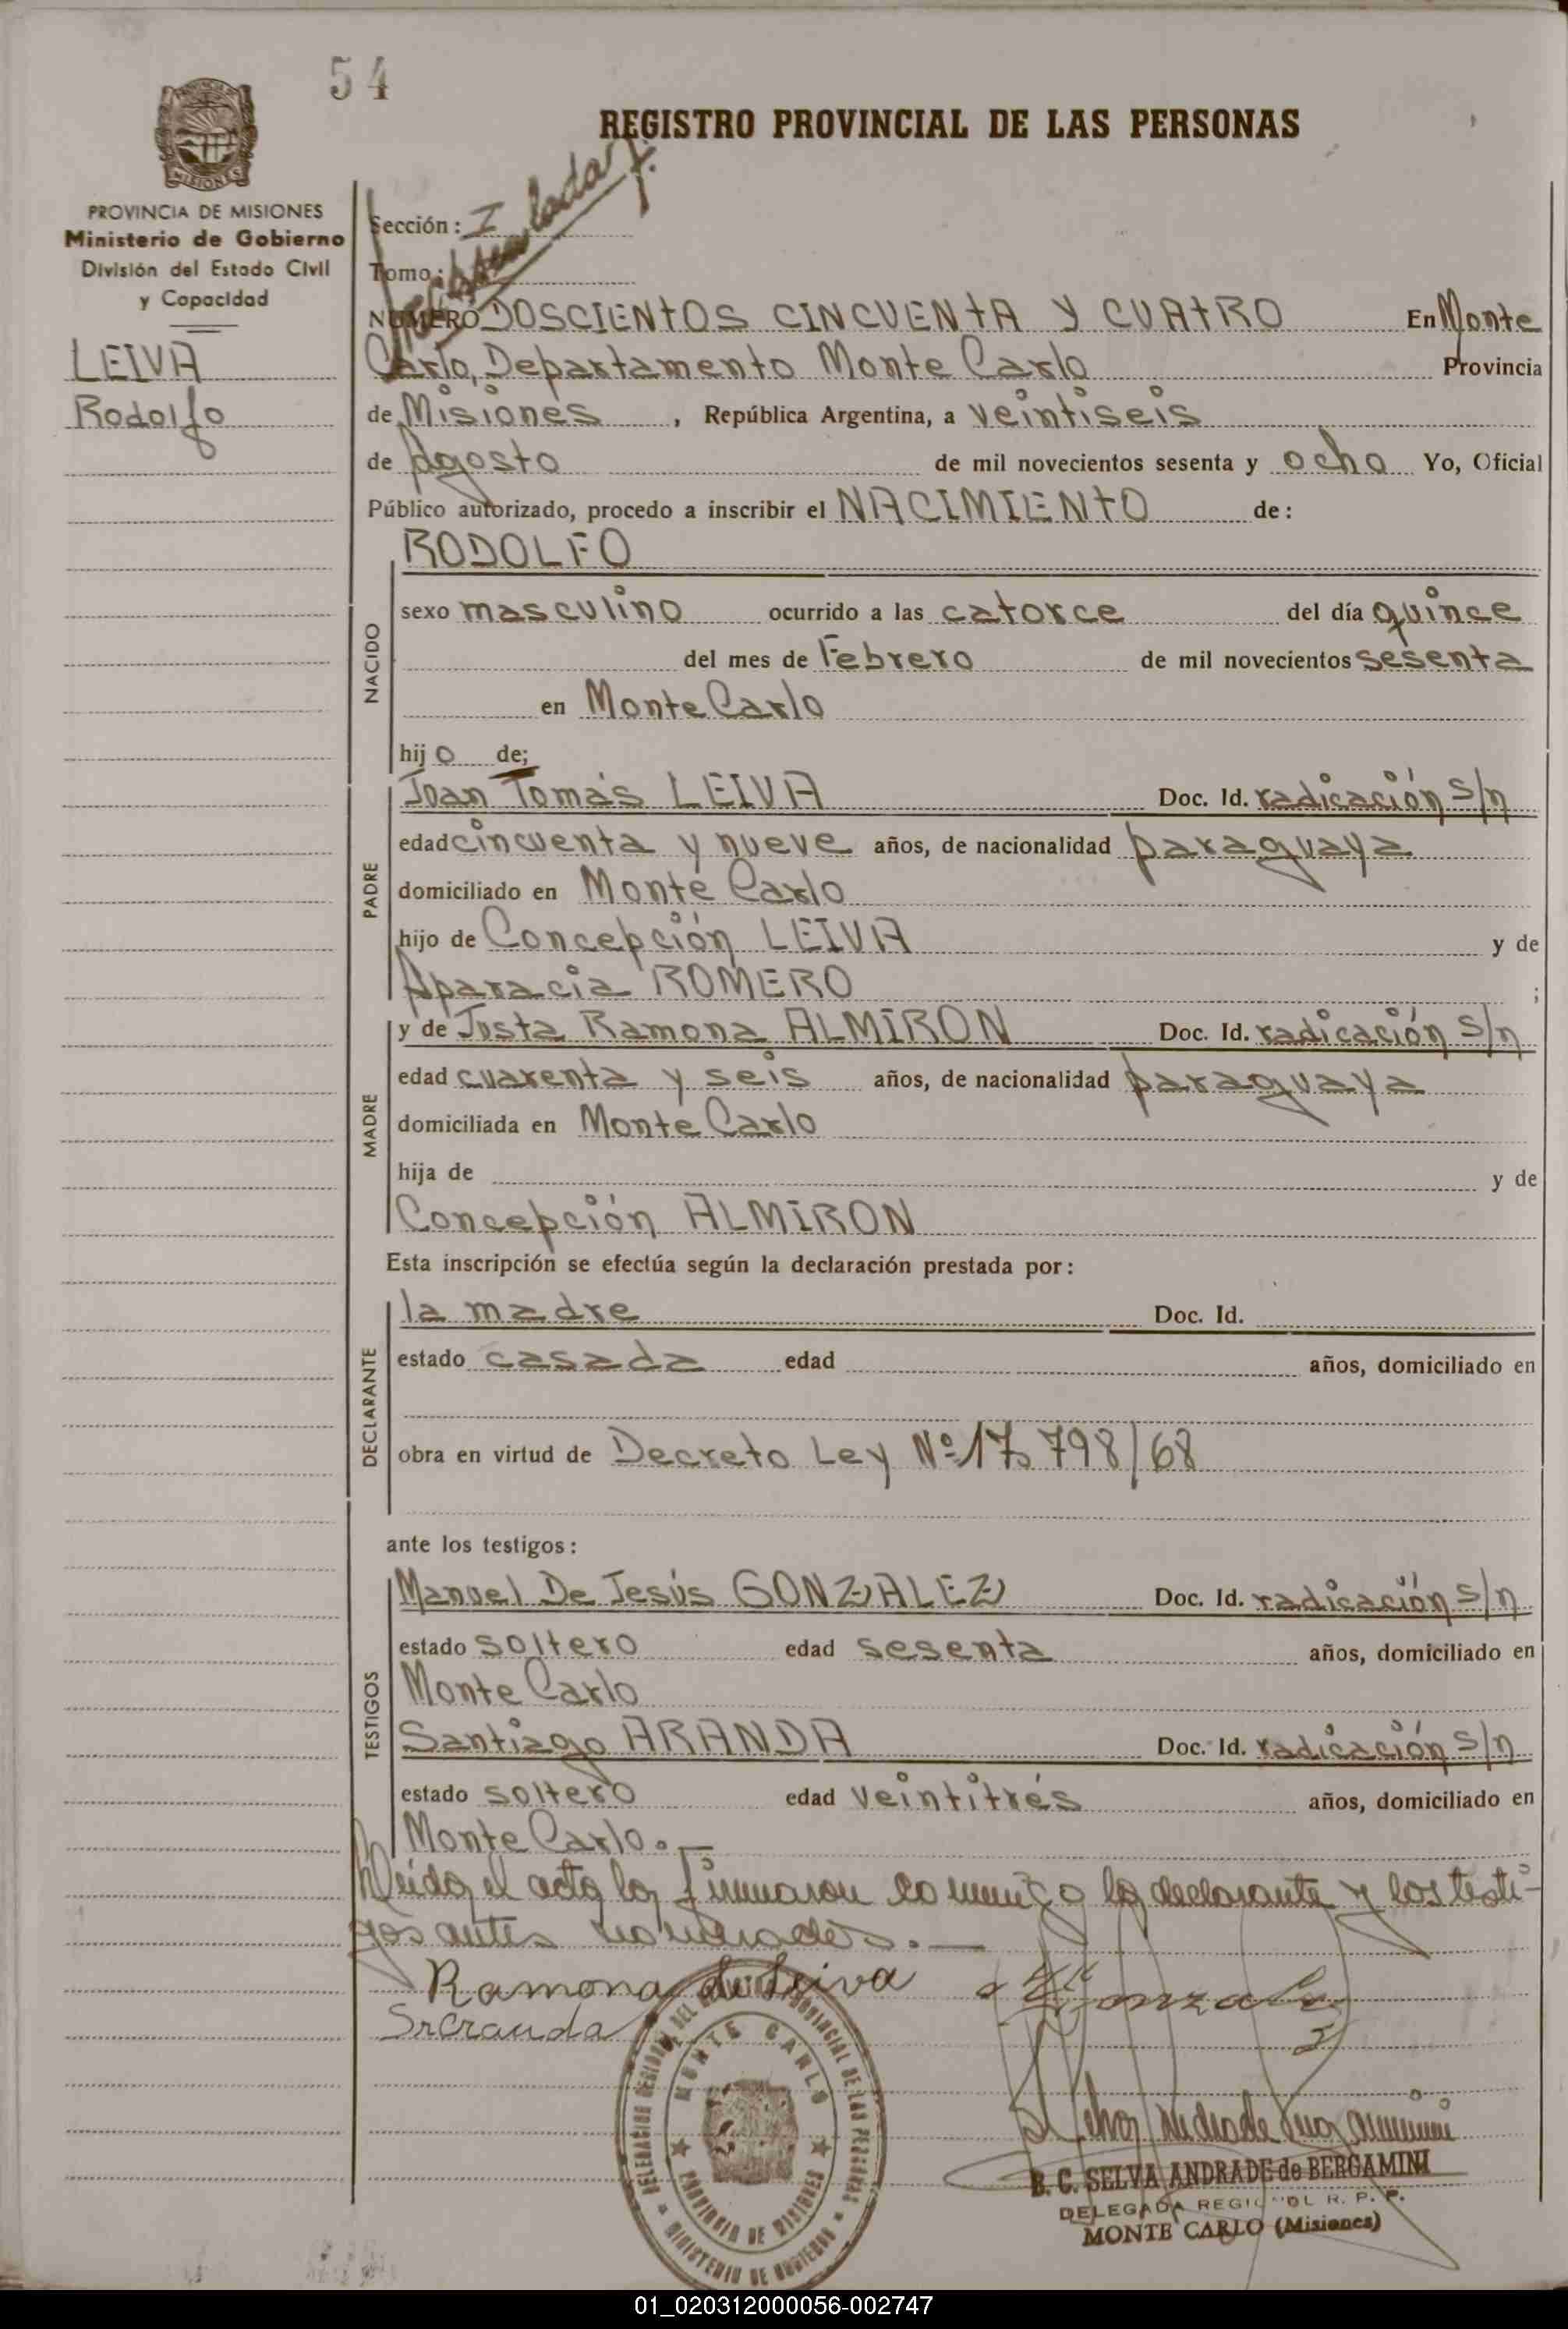 54
REGISTRO PROVINCIAL DE LAS PERSONAS
MISIONES
PROVINCIA DE MISIONES
Ministerio de Gobierno
División del Estado Civil
y Capacidad
LEIVA
Rodolfo
Sección: I
Tomo:
NUMERO DOSCIENTOS CINCUENTA Y CUATRO En Monte
Carlo, Departamento Monte Carlo Provincia
de Misiones, República Argentina, a veintiseis
de Agosto de mil novecientos sesenta y ocho Yo, Oficial
Público autorizado, procedo a inscribir el NACIMIENTO de:
NACIDO
RODOLFO
sexo masculino ocurrido a las catorce del día quince
del mes de Febrero de mil novecientos sesenta
en Monte Carlo
hijo de;
PADRE
Juan Tomás LEIVA Doc. Id. radicación s/n
edad cincuenta y nueve años, de nacionalidad paraguaya
domiciliado en Monte Carlo
hijo de Concepción LEIVA y de
Aparacia ROMERO ;
MADRE
y de Justa Ramona ALMIRON Doc. Id. radicación s/n
edad cuarenta y seis años, de nacionalidad paraguaya
domiciliada en Monte Carlo
hija de y de
Concepción ALMIRON
Esta inscripción se efectúa según la declaración prestada por:
DECLARANTE
la madre Doc. Id.
estado casada edad años, domiciliado en
obra en virtud de Decreto Ley Nº 17.798/68
ante los testigos:
TESTIGOS
Manuel De Jesús GONZALEZ Doc. Id. radicación s/n
estado soltero edad sesenta años, domiciliado en
Monte Carlo
Santiago ARANDA Doc. Id. radicación s/n
estado soltero edad veintitrés años, domiciliado en
Monte Carlo.—
Leída el acta la firmaron conmigo la declarante y los testi-
gos antes nombrados.—
Ramona de Leiva Gonzalez
SrAranda
DELEGACION REGIONAL DEL REGISTRO PROVINCIAL DE LAS PERSONAS
MONTE CARLO
PROVINCIA DE MISIONES
MINISTERIO DE GOBIERNO
B. C. SELVA ANDRADE de BERGAMINI
DELEGADA REGIONAL R. P. P.
MONTE CARLO (Misiones)
01_020312000056-002747